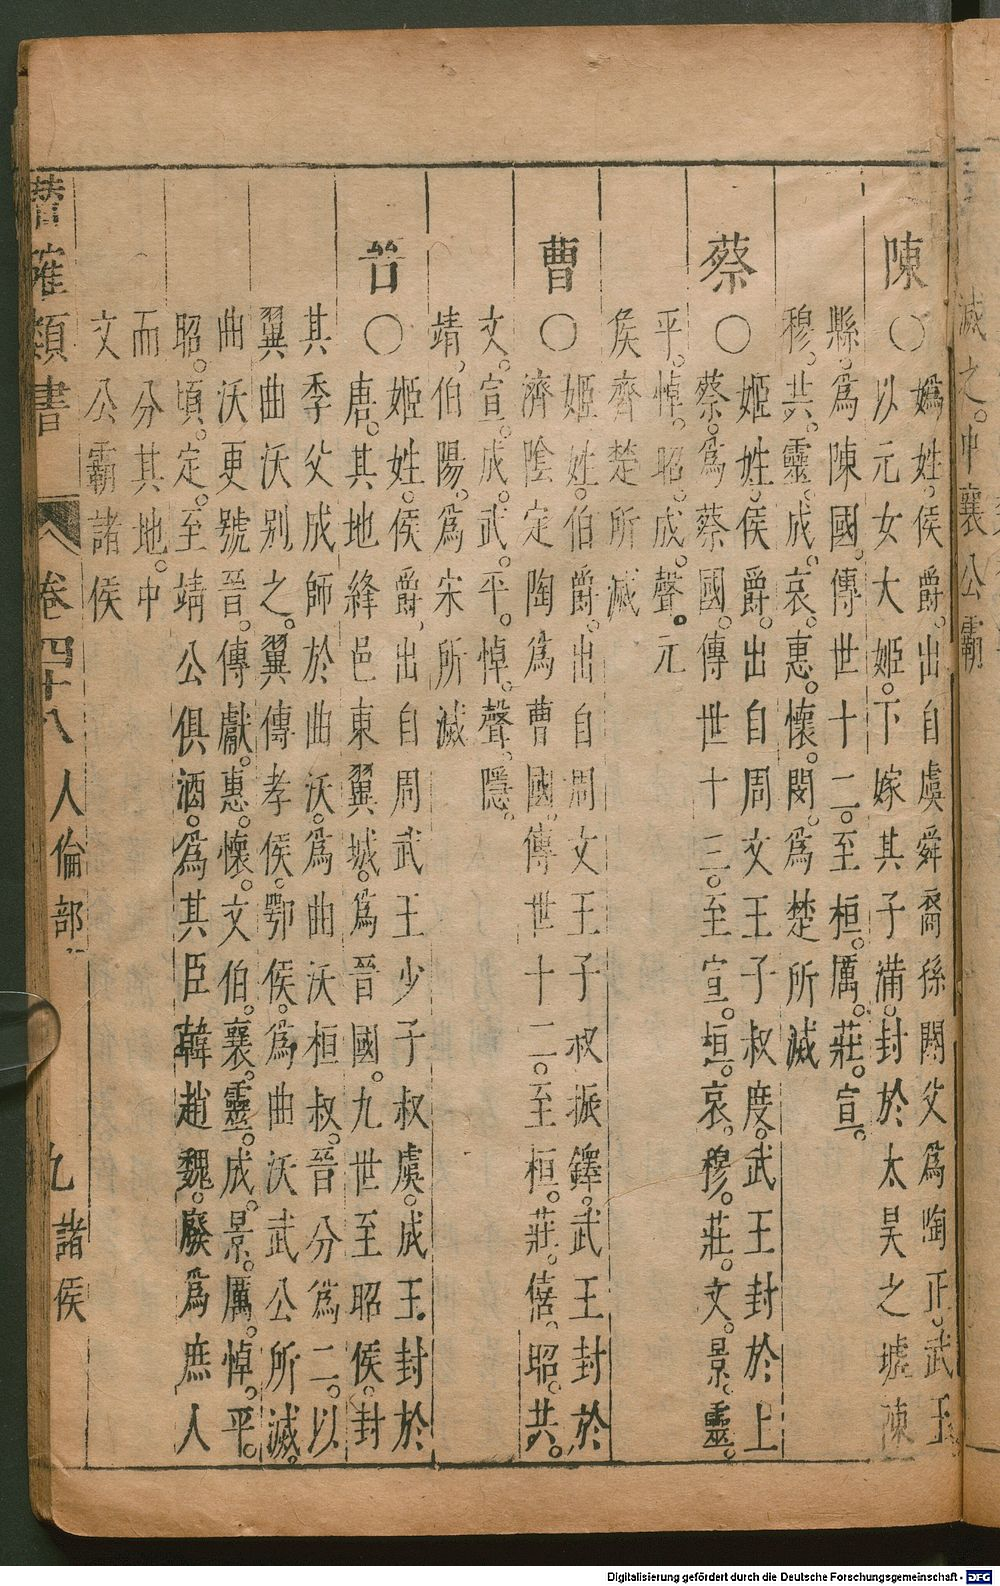 滅之。中襄公霸
陳○媯姓。侯爵。出自虞舜裔孫閼父爲陶正。武王
以元女大姬。下嫁其子滿。封於太昊之墟陳
縣。爲陳國。傳世十二。至桓。厲。莊。宣。
穆。共。靈。成。哀。惠。懷。閔。爲楚所滅
蔡○姬姓。侯爵。出自周文王子叔度。武王封於上
蔡。爲蔡國。傳世十三。至宣。桓。哀。穆。莊。文。景。靈。
平。悼。昭。成。聲。元
侯齊楚所滅
曹○姬姓。伯爵。出自周文王子叔振鐸。武王封於
濟陰定陶爲曹國。傳世十二。至桓。莊。僖。昭。共。
文。宣。成。武。平。悼。聲。隱。
靖。伯陽。爲宋所滅
晉○姬姓。侯爵。出自周武王少子叔虞。成王封於
唐。其地絳邑東翼城。爲晉國。九世至昭侯。封
其季父成師於曲沃。爲曲沃桓叔。晉分爲二。以
翼曲沃别之。翼傳孝侯。鄂侯。爲曲沃武公所滅。
曲沃更號晉。傳獻。惠。懷。文伯。襄。靈。成。景。厲。悼。平。
昭。頃。定。至靖公俱酒。爲其臣韓趙魏。廢爲庶人
而分其地。中
文公霸諸侯
潛確類書 卷四十八 人倫部 九 諸侯
Digitalisierung gefördert durch die Deutsche Forschungsgemeinschaft - DFG